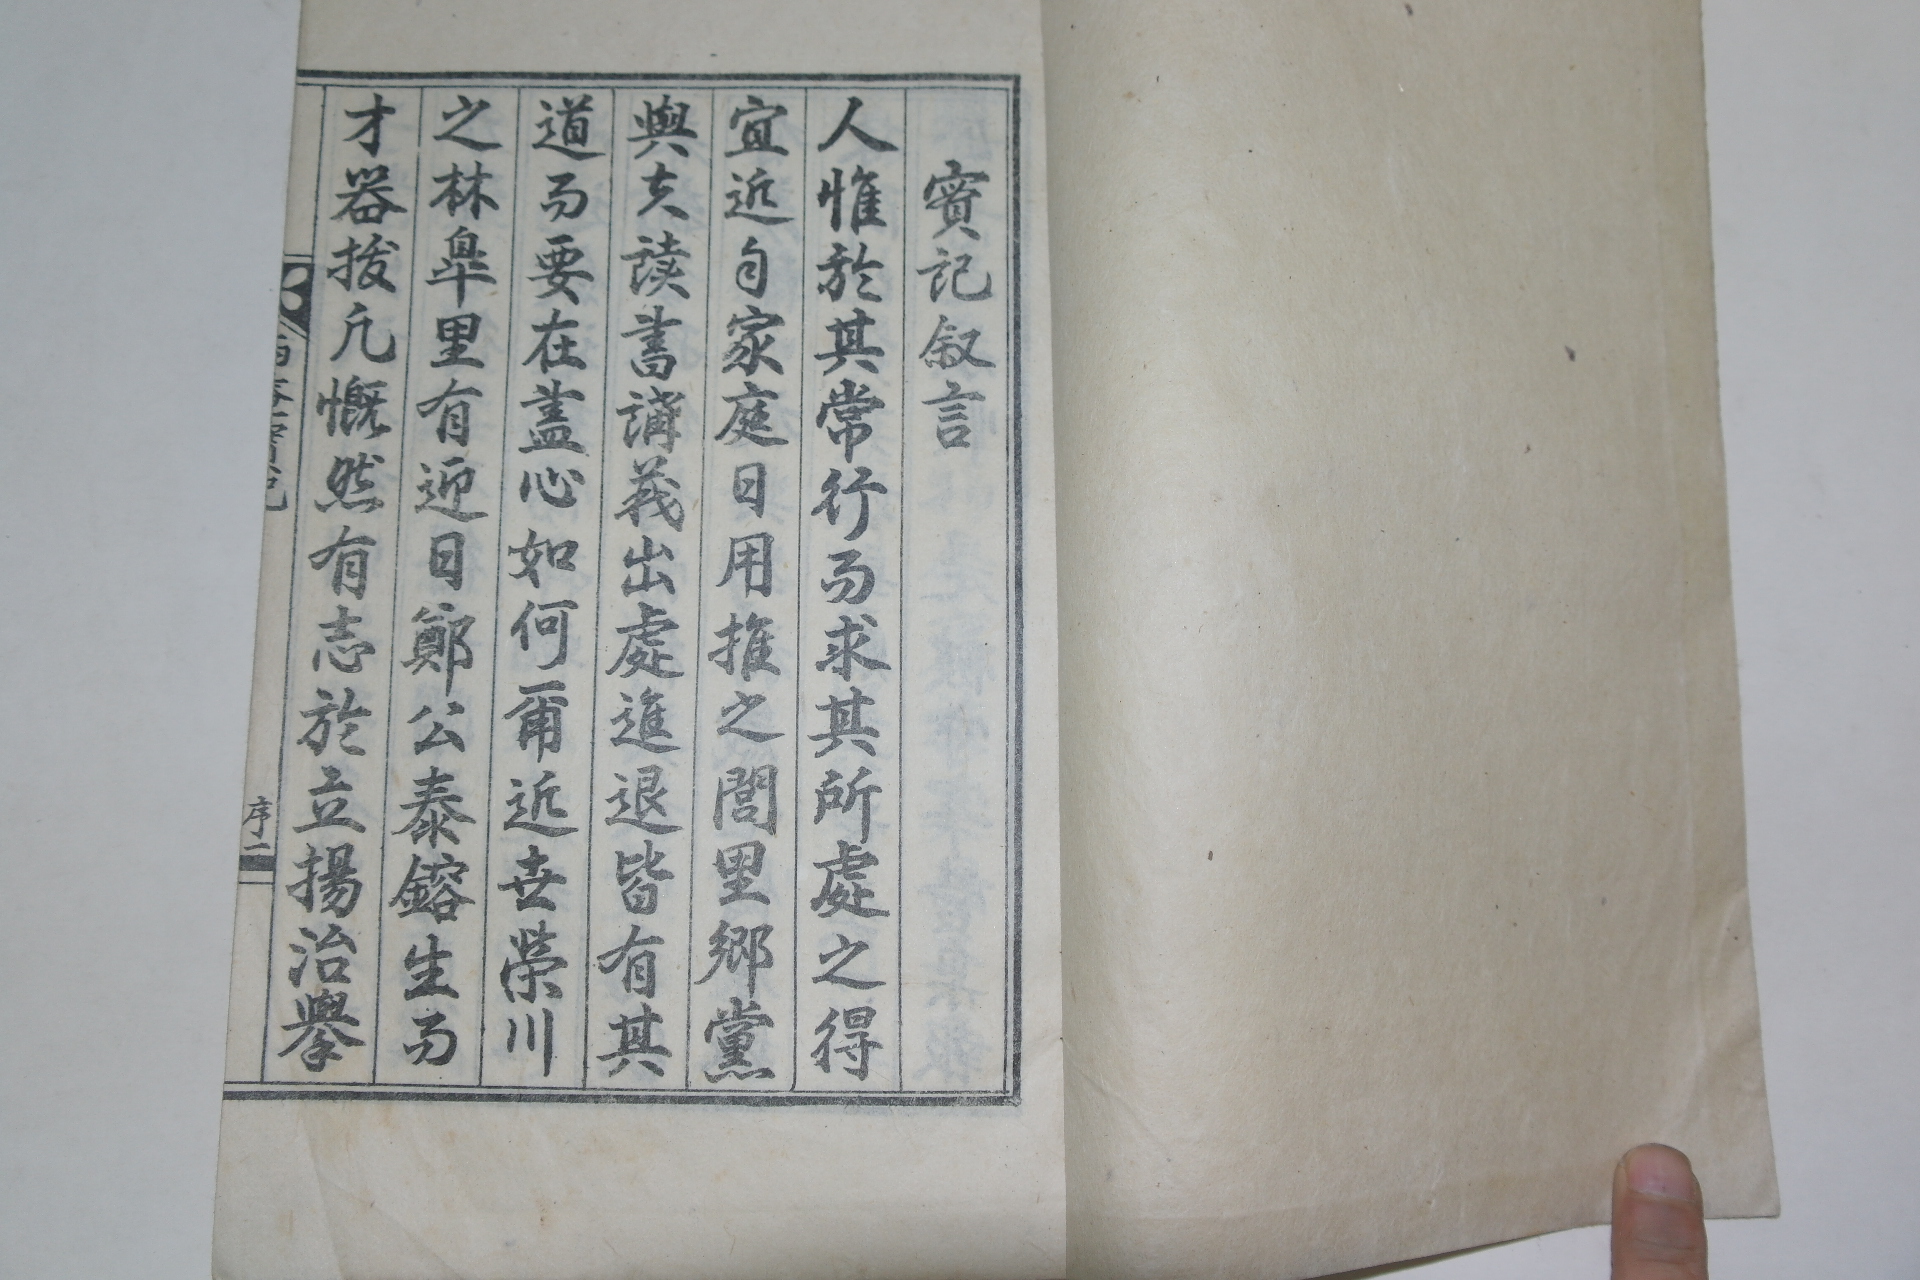 實記叙言
人惟於其常行而求其所處之得
宜近自家庭日用推之閭里鄉黨
與夫读書講義出處進退皆有其
道而要在盡心如何爾近世榮川
之林皐里有近日鄭公泰鎔生而
才器拔凡慨然有志於立揚治擧
實記
序二